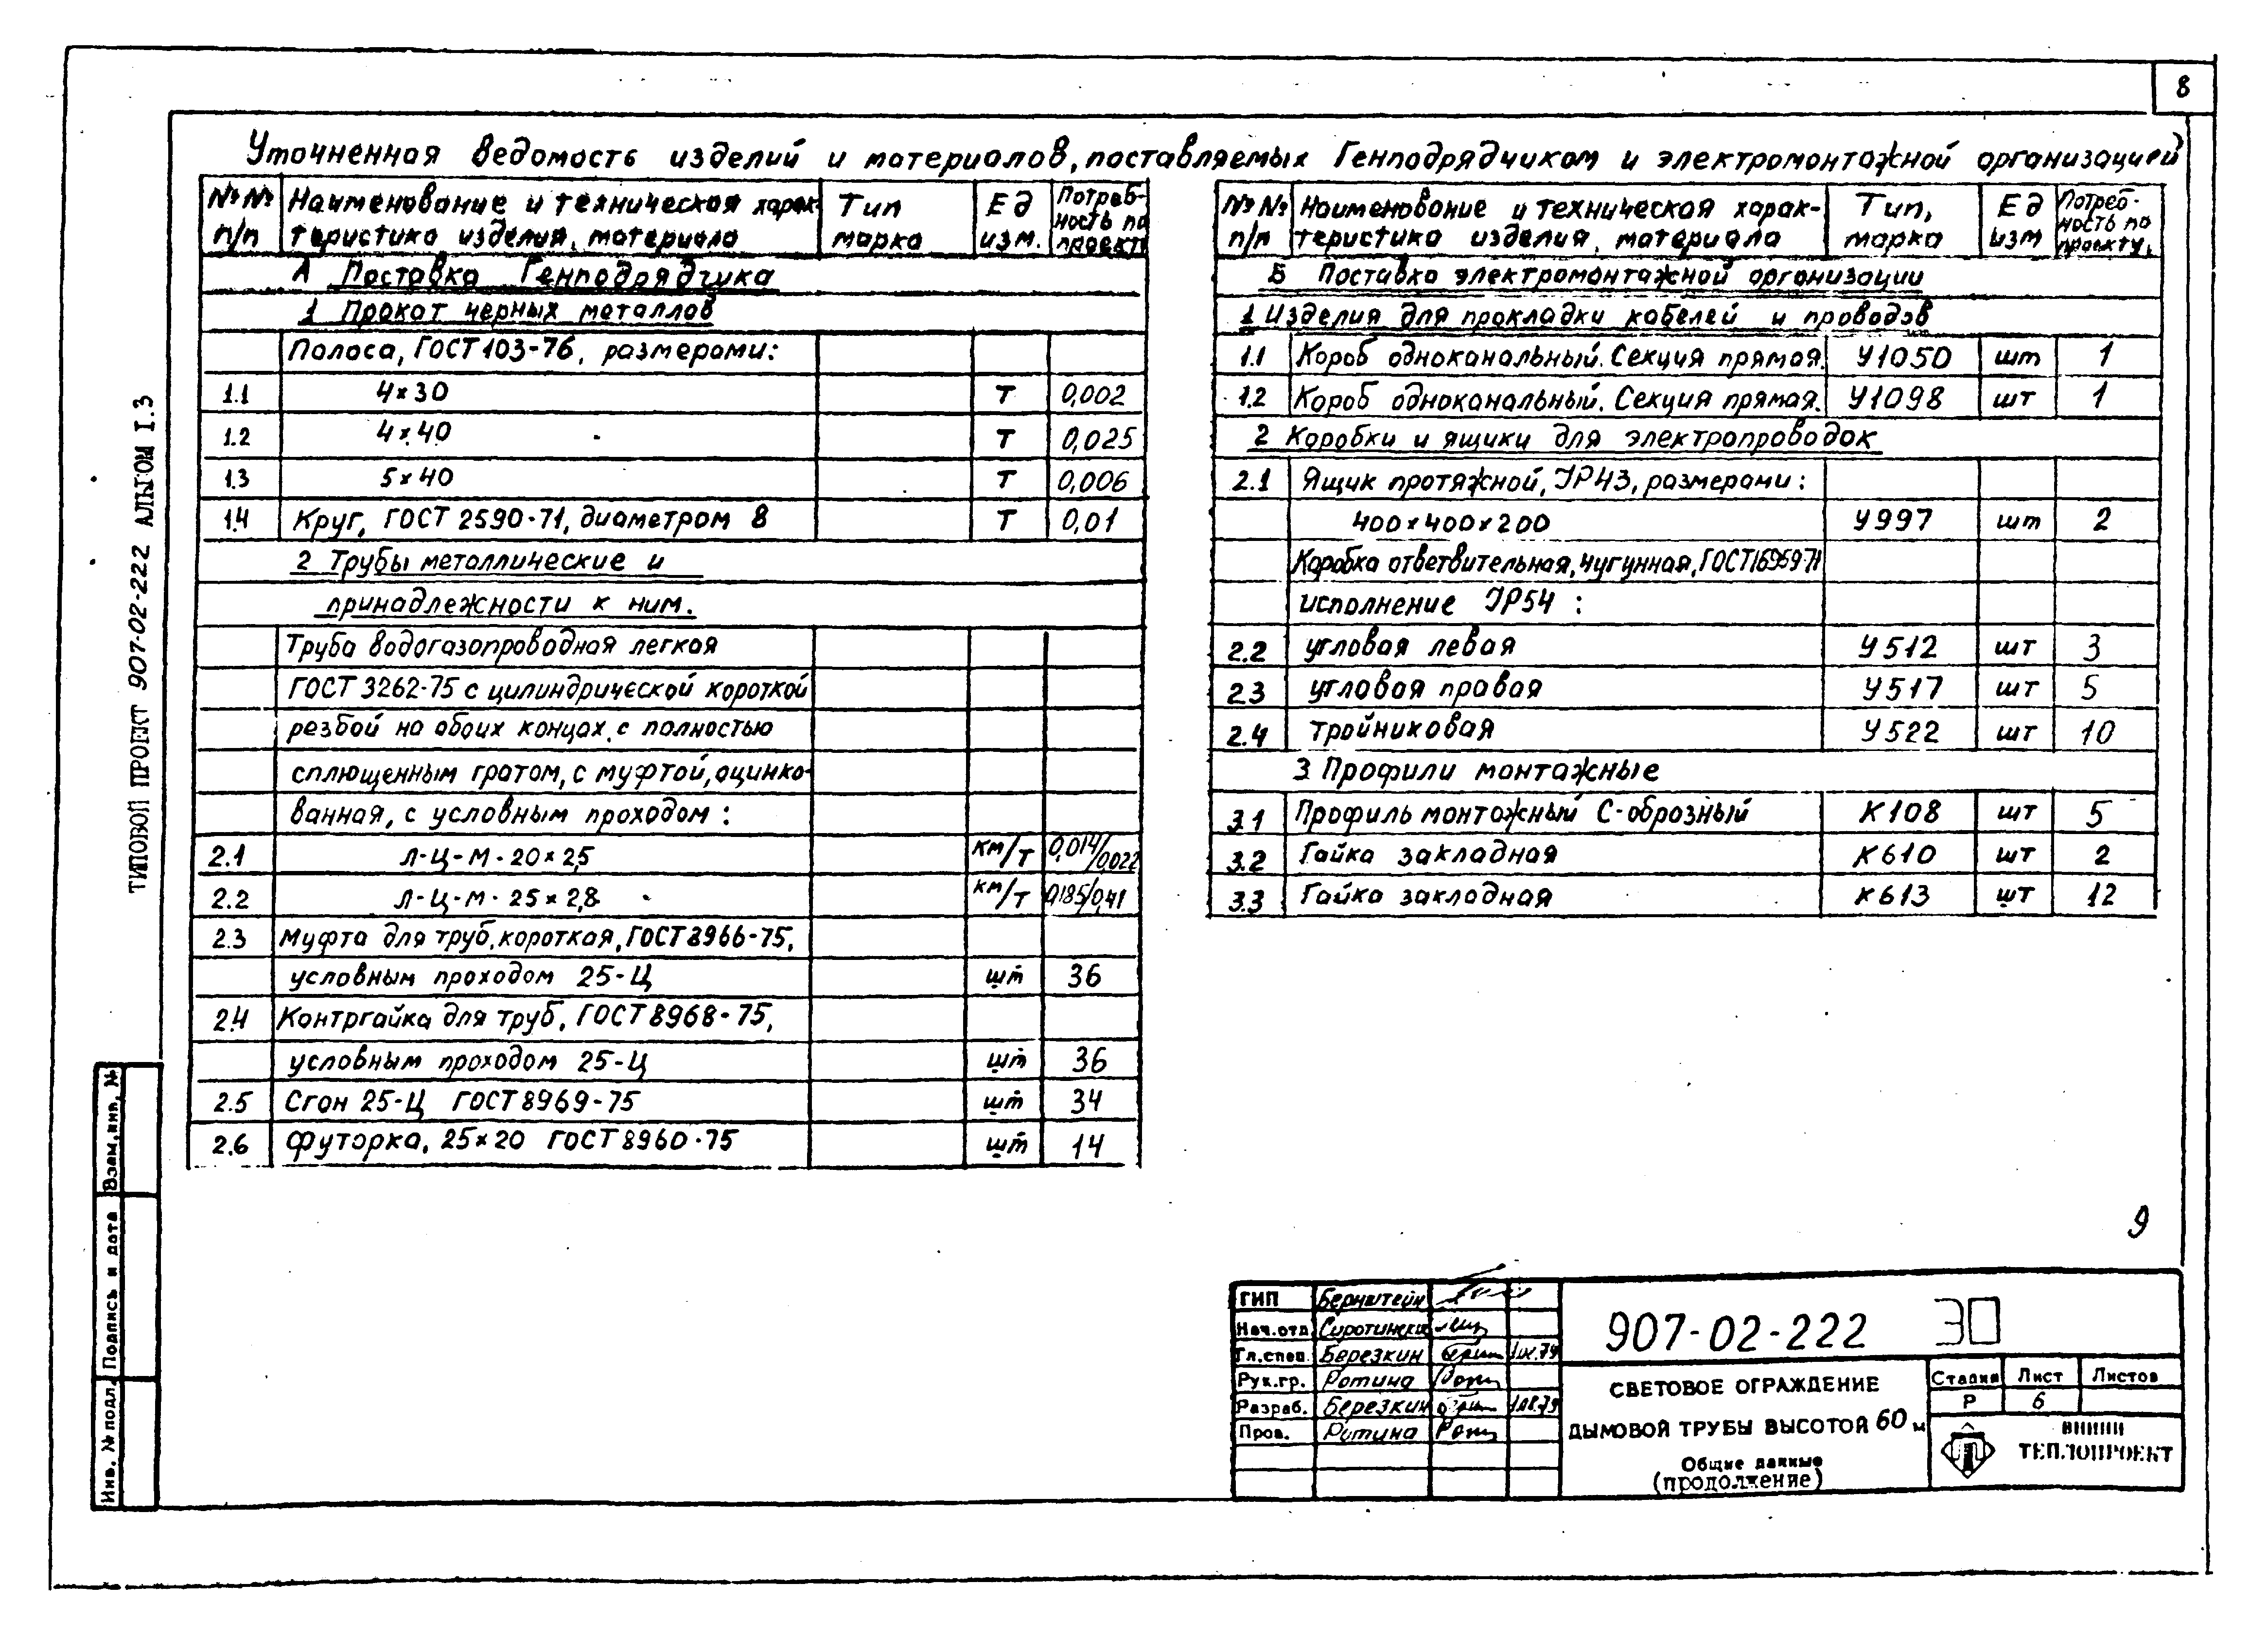 8
Уточненная ведомость изделий и материалов, поставляемых Генподрядчиком и электромонтажной организацией
№№ п/п Наименование и техническая харак- теристика изделия, материала Тип марка Ед изм. Потреб- ность по проекту
А Поставка Генподрядчика
1 Прокат черных металлов
Полоса, ГОСТ 103-76, размерами:
1.1 4×30 т 0,002
1.2 4×40 т 0,025
1.3 5×40 т 0,006
1.4 Круг, ГОСТ 2590-71, диаметром 8 т 0,01
2 Трубы металлические и
принадлежности к ним.
Труба водогазопроводная легкая
ГОСТ 3262-75 с цилиндрической короткой
резбой на обоих концах, с полностью
сплющенным гратом, с муфтой, оцинко-
ванная, с условным проходом:
2.1 Л-Ц-М-20×2,5 км/т 0,014/0,022
2.2 Л-Ц-М-25×2,8 км/т 0,185/0,41
2.3 Муфта для труб, короткая, ГОСТ 8966-75,
условным проходом 25-Ц шт 36
2.4 Контргайка для труб, ГОСТ 8968-75,
условным проходом 25-Ц шт 36
2.5 Сгон 25-Ц ГОСТ 8969-75 шт 34
2.6 Футорка, 25×20 ГОСТ 8960-75 шт 14
№№ п/п Наименование и техническая харак- теристика изделия, материала Тип, марка Ед изм Потреб- ность по проекту.
Б Поставка электромонтажной организации
1 Изделия для прокладки кабелей и проводов
1.1 Короб одноканальный. Секция прямая. У1050 шт 1
1.2 Короб одноканальный. Секция прямая. У1098 шт 1
2 Коробки и ящики для электропроводок
2.1 Ящик протяжной, IP43, размерами:
400×400×200 У997 шт 2
Коробка ответвительная, чугунная, ГОСТ
исполнение IP54:
2.2 угловая левая У512 шт 3
2.3 угловая правая У517 шт 5
2.4 тройниковая У522 шт 10
3 Профили монтажные
3.1 Профиль монтажный С-образный К108 шт 5
3.2 Гайка закладная К610 шт 2
3.3 Гайка закладная К613 шт 12
ТИПОВОЙ ПРОЕКТ 907-02-222 АЛЬБОМ I.3
Взам. инв. №
Подпись и дата
Инв. № подл.
9
ГИП Бернштейн
Нач.отд
Гл.спец. Березкин
Рук.гр. Ротина
Разраб. Березкин
Пров. Ротина
907-02-222 ЭО
СВЕТОВОЕ ОГРАЖДЕНИЕ
ДЫМОВОЙ ТРУБЫ ВЫСОТОЙ 60 м
Общие данные
(продолжение)
Стадия Лист Листов
Р 6
ВНИПИ
ТЕПЛОПРОЕКТ